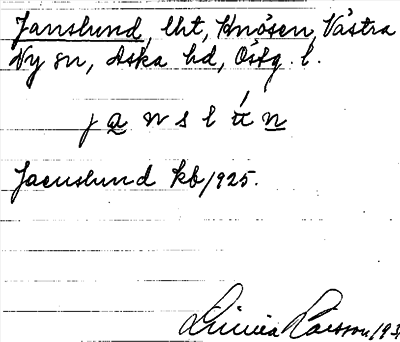 Janslund, lht, Knösen, Västra
Ny sn, Aska hd, Östg. l.
j a n s l n
Jaenslund kb 1925.
Larsson 193